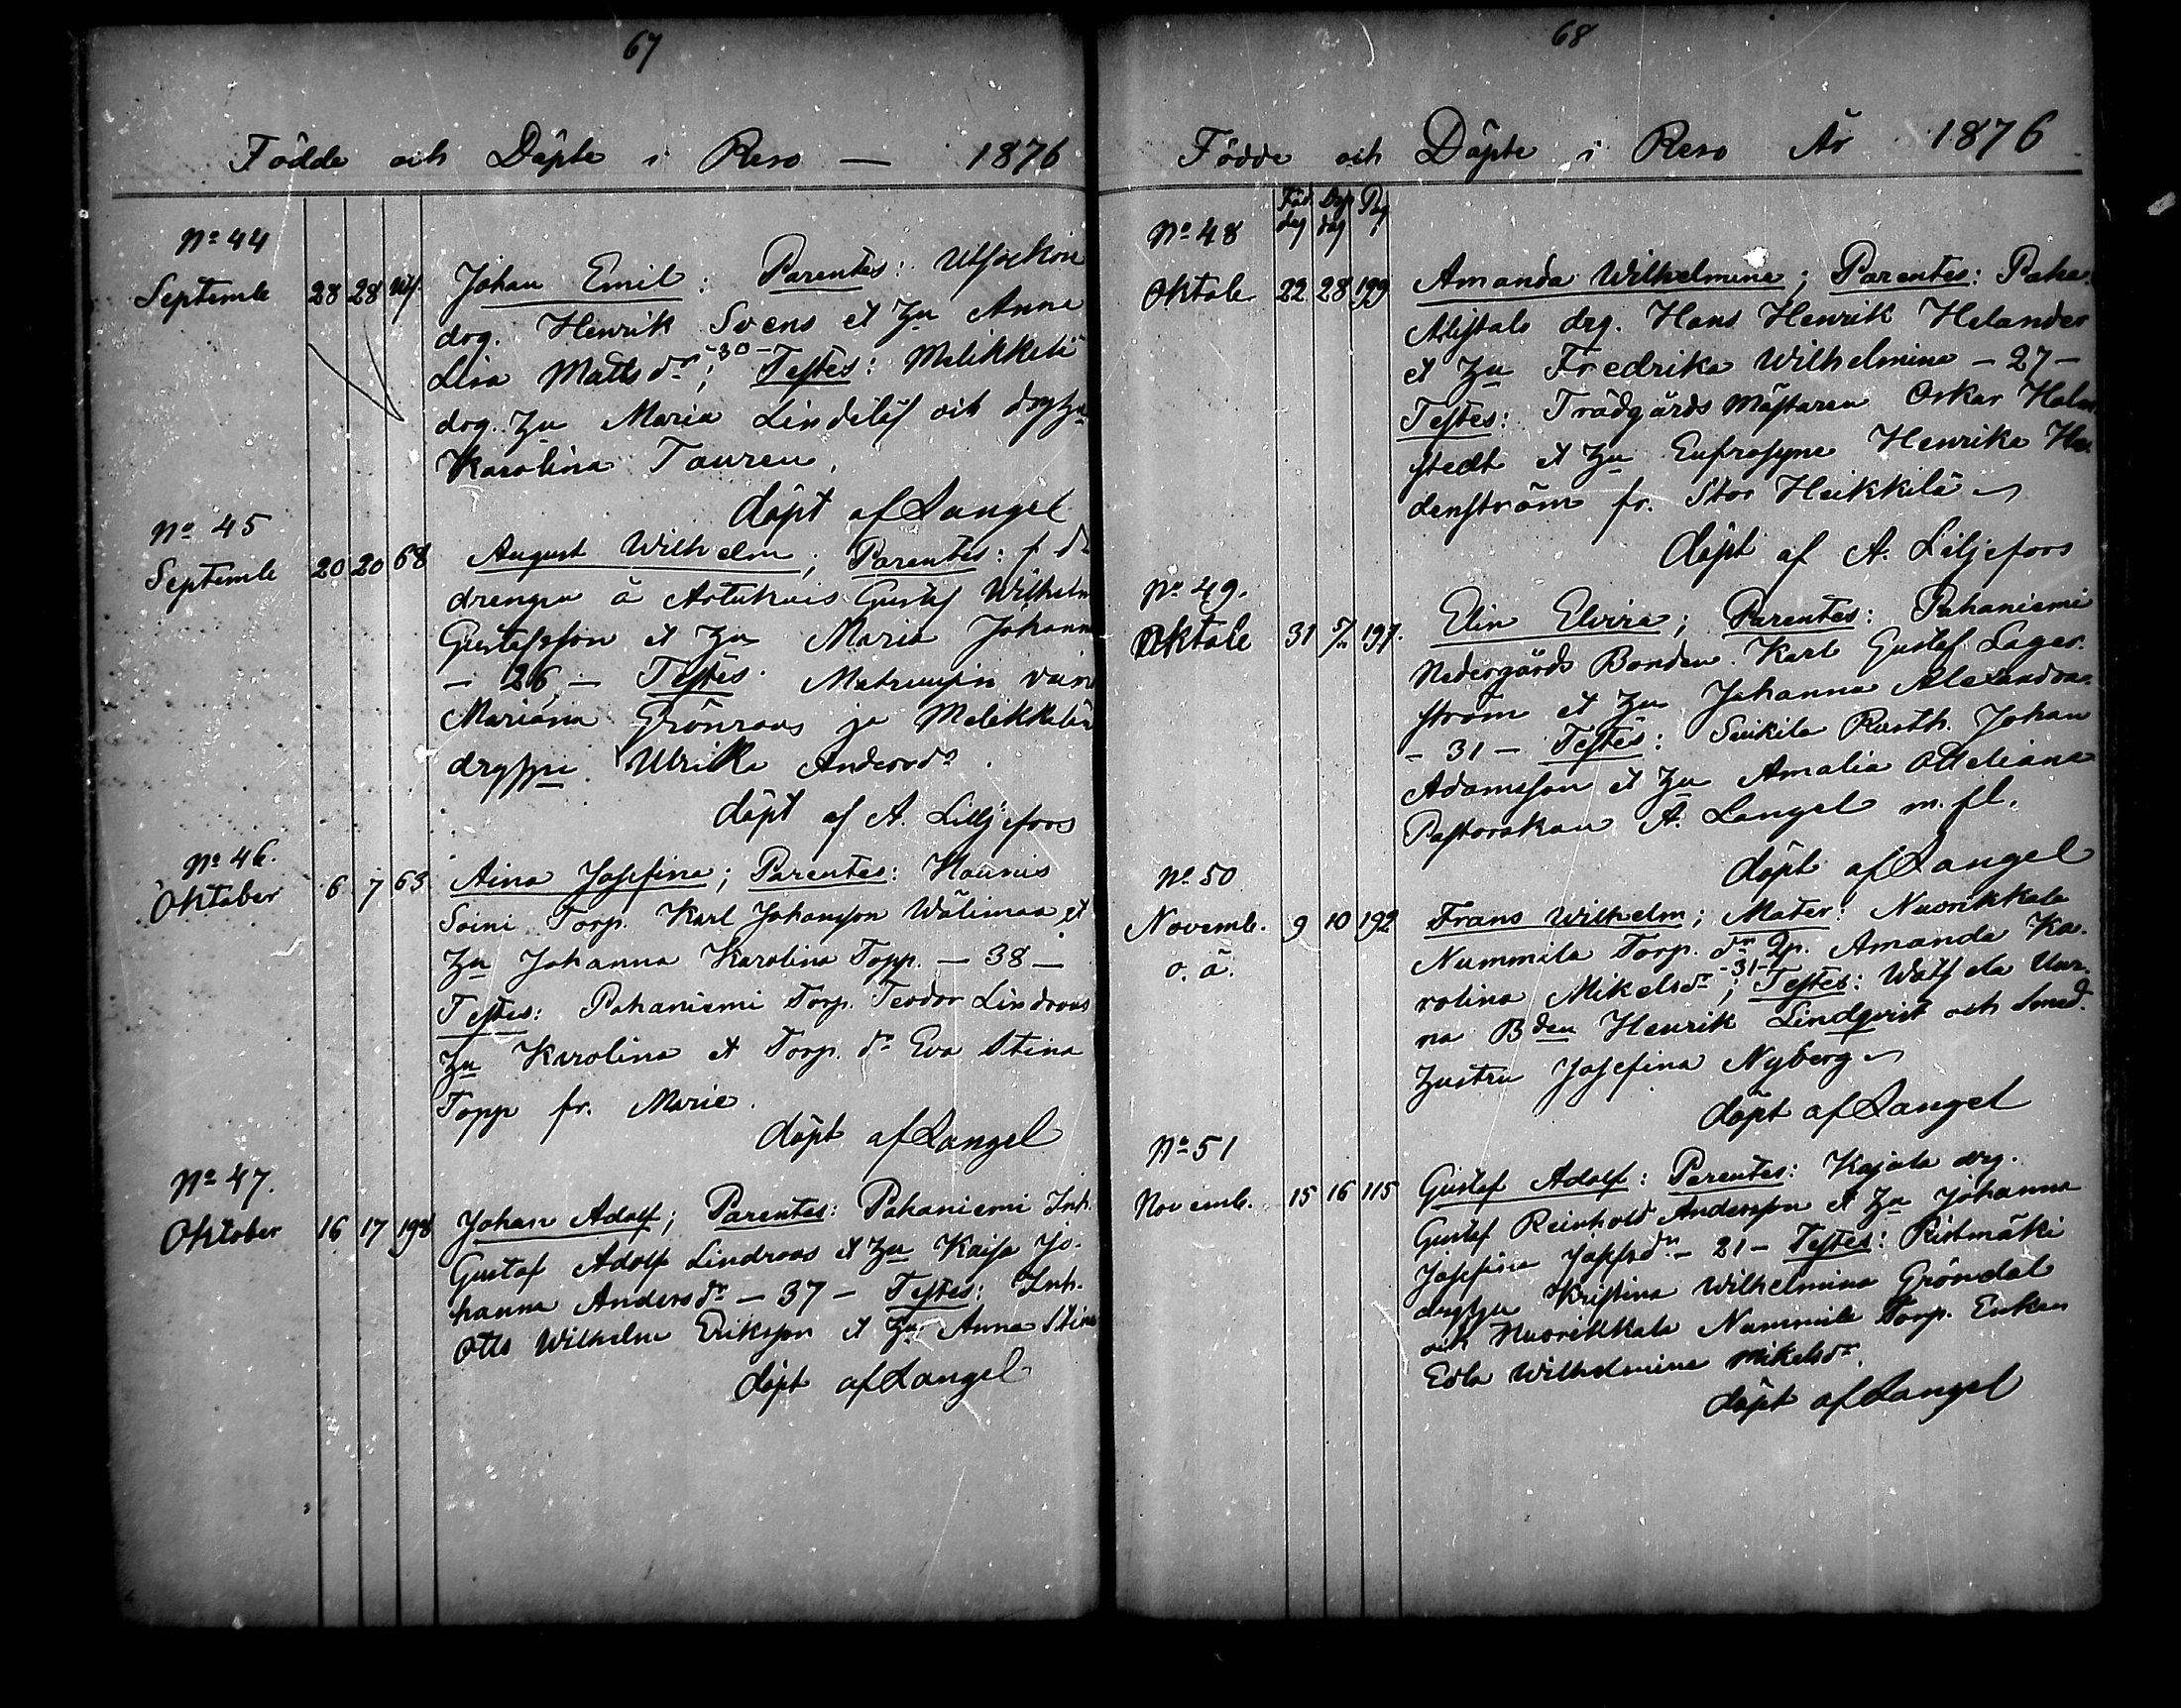 67
Födde och Döpte i Reso — 1876
No 44
Septemb 28 28
Johan Emil; Parentes:
drg. Henrik Svens et Hu Anna
Lisa Matts dr -30-; Testes: Melikkilä
drg. Hu Maria Lindelöf och drg hu
Karolina Tauren.
döpt af Langel
No 45
Septemb 20 20 68
August Wilhelm; Parentes: f. d.
drengen å Artukais Gustaf Wilhelm
Gustafsson et Hu Maria Johanna
— 26 — Testes: vaimo
Mariana Grönroos ja Melikkilän
Ulrika Andersdr.
döpt af A. Liljefors
No 46.
Oktober 6 7 63
Aina Josefina; Parentes: Haunis
Soini Torp. Karl Johansson Wälimaa et
Hu Johanna Karolina Topp. — 38 —
Testes: Pahaniemi Torp. Teodor Lindroos
Hu Karolina et Torp. dr Eva Stina
Topp fr. Marie.
döpt af Langel
No 47.
Oktober 16 17 198
Johan Adolf; Parentes: Pahaniemi Inh.
Gustaf Adolf Lindroos et Hu Kaisa Jo-
hanna Anders dr — 37 — Testes: Inh.
Otto Wilhelm Eriksson et Hu Anna Stina
döpt af Langel
68
Födde och Döpte i Reso År 1876
Föd. dag Döp dag Pag
No 48
Oktob. 22 28 199
Amanda Wilhelmina; Parentes: Paha-
Alistalo drg. Hans Henrik Helander
et Hu Fredrika Wilhelmina — 27 —
Testes: Trädgårds Mästaren Oskar Holm-
stedt et Hu Eufrosyne Henrika
denström fr. Stor Heikkilä
döpt af A. Liljefors
No 49.
Oktob. 31 5/11 197.
Elin Elvira; Parentes: Pahaniemi
Nedergårds Bonden Karl Gustaf Lager-
ström et Hu Johanna Alexandra
— 31 — Testes: Suikila Rusth. Johan
Adamsson et Hu Amalia Otteliana
Pastorskan A. Langel m. fl.
döpt af Langel
No 50
Novemb. 9 10 192
o. ä.
Frans Wilhelm; Mater: Nuorikkala
Nummila Torp. dr Qp. Amanda Ka-
rolina Mikelsdr -31-; Testes:
na Bden Henrik Lindqvist och Smed.
hustru Josefina Nyberg
döpt af Langel
No 51
Novemb. 15 16 115
Gustaf Adolf: Parentes: Kajala drg.
Gustaf Reinhold Andersson et Hu Johanna
Josefina Josefsdr — 21 — Testes: Ristimäki
drghu Kristina Wilhelmina Gröndal
och Nuorikkala Nummila Torp. Enkan
Edla Wilhelmina Mikelsdr.
döpt af Langel